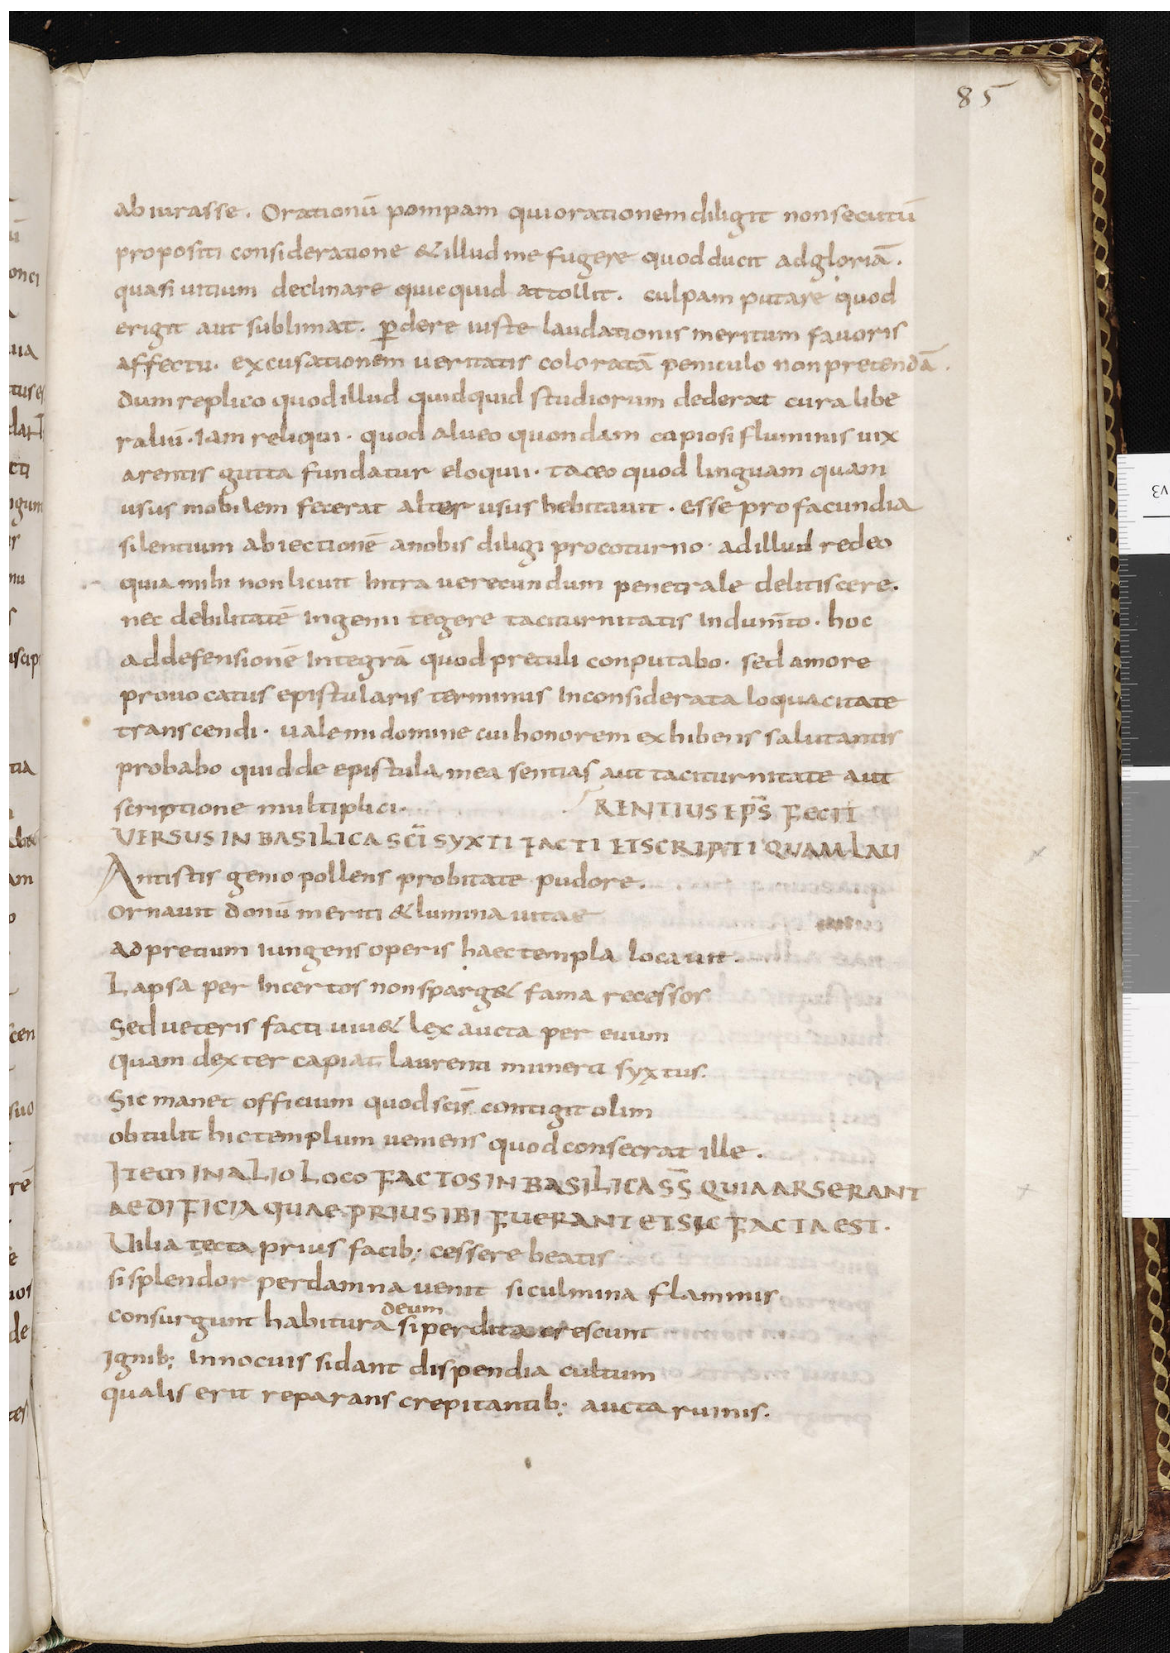 85
abiurasse. Orationū pompam qui orationem diligit non secutū
propositi consideratione & illud me fugere quod ducit ad gloriā.
quasi uitium declinare quicquid attollit. culpam putare quod
erigit aut sublimat. ꝑdere iuste laudationis meritum fauoris
affectu. excusationem ueritatis coloratā peniculo non pretendā.
dum replico quod illud quidquid studiorum dederat cura libe
raliū. iam reliqui. quod alueo quondam capiosi fluminis uix
arentis gutta fundatur eloquii. taceo quod linguam quam
usus mobilem fecerat alter usus hebitauit. esse pro facundia
silentium abiectionē a nobis diligi pro coturno. ad illud redeo
quia mihi non licuit intra uerecundum penetrale delitiscere.
nec debilitatē ingenii tegere taciturnitatis indum̄to. hoc
ad defensionē integrā quod pretuli conputabo. sed amore
prouocatus epistularis terminus inconsiderata loquacitate
transcendi. uale mi domine cui honorem exhibens salutantis
probabo quid de epistula mea sentias aut taciturnitate aut
scriptione multiplici. RENTIUS EPS̄ FECIT
VERSUS IN BASILICA SC̄I SYXTI FACTI ET SCRIPTI QUAM LAU
Antistis genio pollens probitate pudore.
ornauit donū meriti & lumina uitae
ad pretium iungens operis haec templa locauit.
Lapsa per incertos non sparg& fama recessos
Sed ueteris facti uiu& lex aucta per euum
Quam dexter capiat laurenti muneri syxtus.
Sic manet officium quod scīs contigit olim
obtulit hic templum ueniens quod consecrat ille.
ITEM IN ALIO LOCO FACTOS IN BASILICA SS̄ QUIA ARSERANT
AEDIFICIA QUAE PRIUS IBI FUERANT ET SIC FACTA EST.
Uilia tecta prius facib; cessere beatis
si splendor per damna uenit si culmina flammis
deum
consurgunt habitura si perdita crescunt
Ignib; innocuis sidant dispendia cultum
qualis erit reparans crepitantib; aucta ruinis.